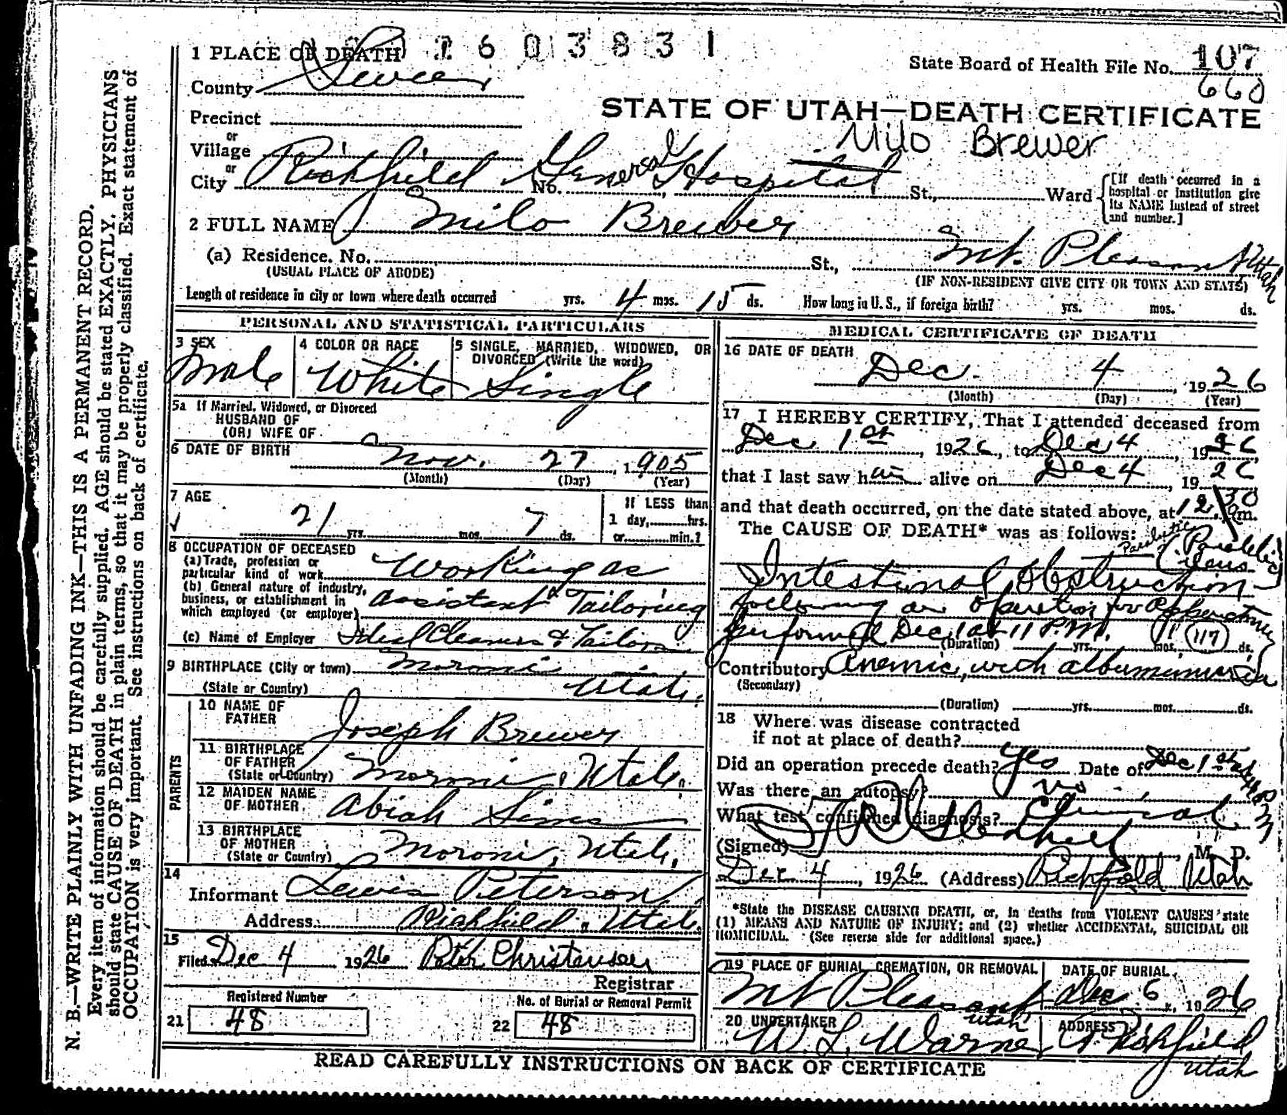 N. B.—WRITE PLAINLY WITH UNFADING INK—THIS IS A PERMANENT RECORD.
Every item of information should be carefully supplied. AGE should be stated EXACTLY. PHYSICIANS
should state CAUSE OF DEATH in plain terms, so that it may be properly classified. Exact statement of
OCCUPATION is very important. See instructions on back of certificate.
1 PLACE OF DEATH 2603831
State Board of Health File No. 107
660
County Sevier
STATE OF UTAH—DEATH CERTIFICATE
Precinct
Milo Brewer
or
Village
or
City Richfield No. General Hospital St., Ward
[If death occurred in a
hospital or institution give
its NAME instead of street
and number.]
2 FULL NAME Milo Brewer
(a) Residence. No. St., Mt. Pleasant, Utah
(USUAL PLACE OF ABODE) (IF NON-RESIDENT GIVE CITY OR TOWN AND STATE)
Length of residence in city or town where death occurred yrs. 4 mos. 15 ds. How long in U. S., if foreign birth? yrs. mos. ds.
PERSONAL AND STATISTICAL PARTICULARS
3 SEX
Male
4 COLOR OR RACE
White
5 SINGLE, MARRIED, WIDOWED, OR
DIVORCED (Write the word)
Single
5a If Married, Widowed, or Divorced
HUSBAND OF
(OR) WIFE OF
6 DATE OF BIRTH Nov. 27, 1905
(Month) (Day) (Year)
7 AGE
21 yrs. mos. 7 ds.
If LESS than
1 day, hrs.
or min.?
8 OCCUPATION OF DECEASED
(a) Trade, profession or
particular kind of work Working as
(b) General nature of industry,
business, or establishment in
which employed (or employer) assistant Tailoring
(c) Name of Employer Ideal Cleaners & Tailors
9 BIRTHPLACE (City or town) Moroni
(State or Country) Utah.
PARENTS
10 NAME OF
FATHER Joseph Brewer
11 BIRTHPLACE
OF FATHER
(State or Country) Moroni, Utah.
12 MAIDEN NAME
OF MOTHER Abiah Sims
13 BIRTHPLACE
OF MOTHER
(State or Country) Moroni, Utah.
14
Informant Lewis Peterson
Address Richfield, Utah.
15
Filed Dec 4 1926 Peter Christensen
Registrar
Registered Number
21 48
No. of Burial or Removal Permit
22 48
MEDICAL CERTIFICATE OF DEATH
16 DATE OF DEATH
Dec. 4, 1926
(Month) (Day) (Year)
17 I HEREBY CERTIFY, That I attended deceased from
Dec 1st 1926, to Dec 4, 1926
that I last saw h alive on Dec 4, 1926
and that death occurred, on the date stated above, at 12 30 m.
The CAUSE OF DEATH* was as follows: Paralytic
ileus
Intestinal Obstruction
following an operation for Appendectomy
performed Dec 1 at 11 P.M. 11 (117)
(Duration) yrs. mos. ds.
Contributory Anemic, with albuminuria
(Secondary)
(Duration) yrs. mos. ds.
18 Where was disease contracted
if not at place of death?
Did an operation precede death? Yes Date of Dec 1st
Was there an autopsy? no
What test confirmed diagnosis? Clinical
(Signed) , M. D.
Dec 4, 1926 (Address) Richfield Utah
*State the DISEASE CAUSING DEATH, or, in deaths from VIOLENT CAUSES state
(1) MEANS AND NATURE OF INJURY; and (2) whether ACCIDENTAL, SUICIDAL OR
HOMICIDAL. (See reverse side for additional space.)
19 PLACE OF BURIAL, CREMATION, OR REMOVAL
Mt Pleasant
Utah
DATE OF BURIAL
Dec 6, 1926
20 UNDERTAKER
W. L. Warner
ADDRESS
Richfield
Utah
READ CAREFULLY INSTRUCTIONS ON BACK OF CERTIFICATE